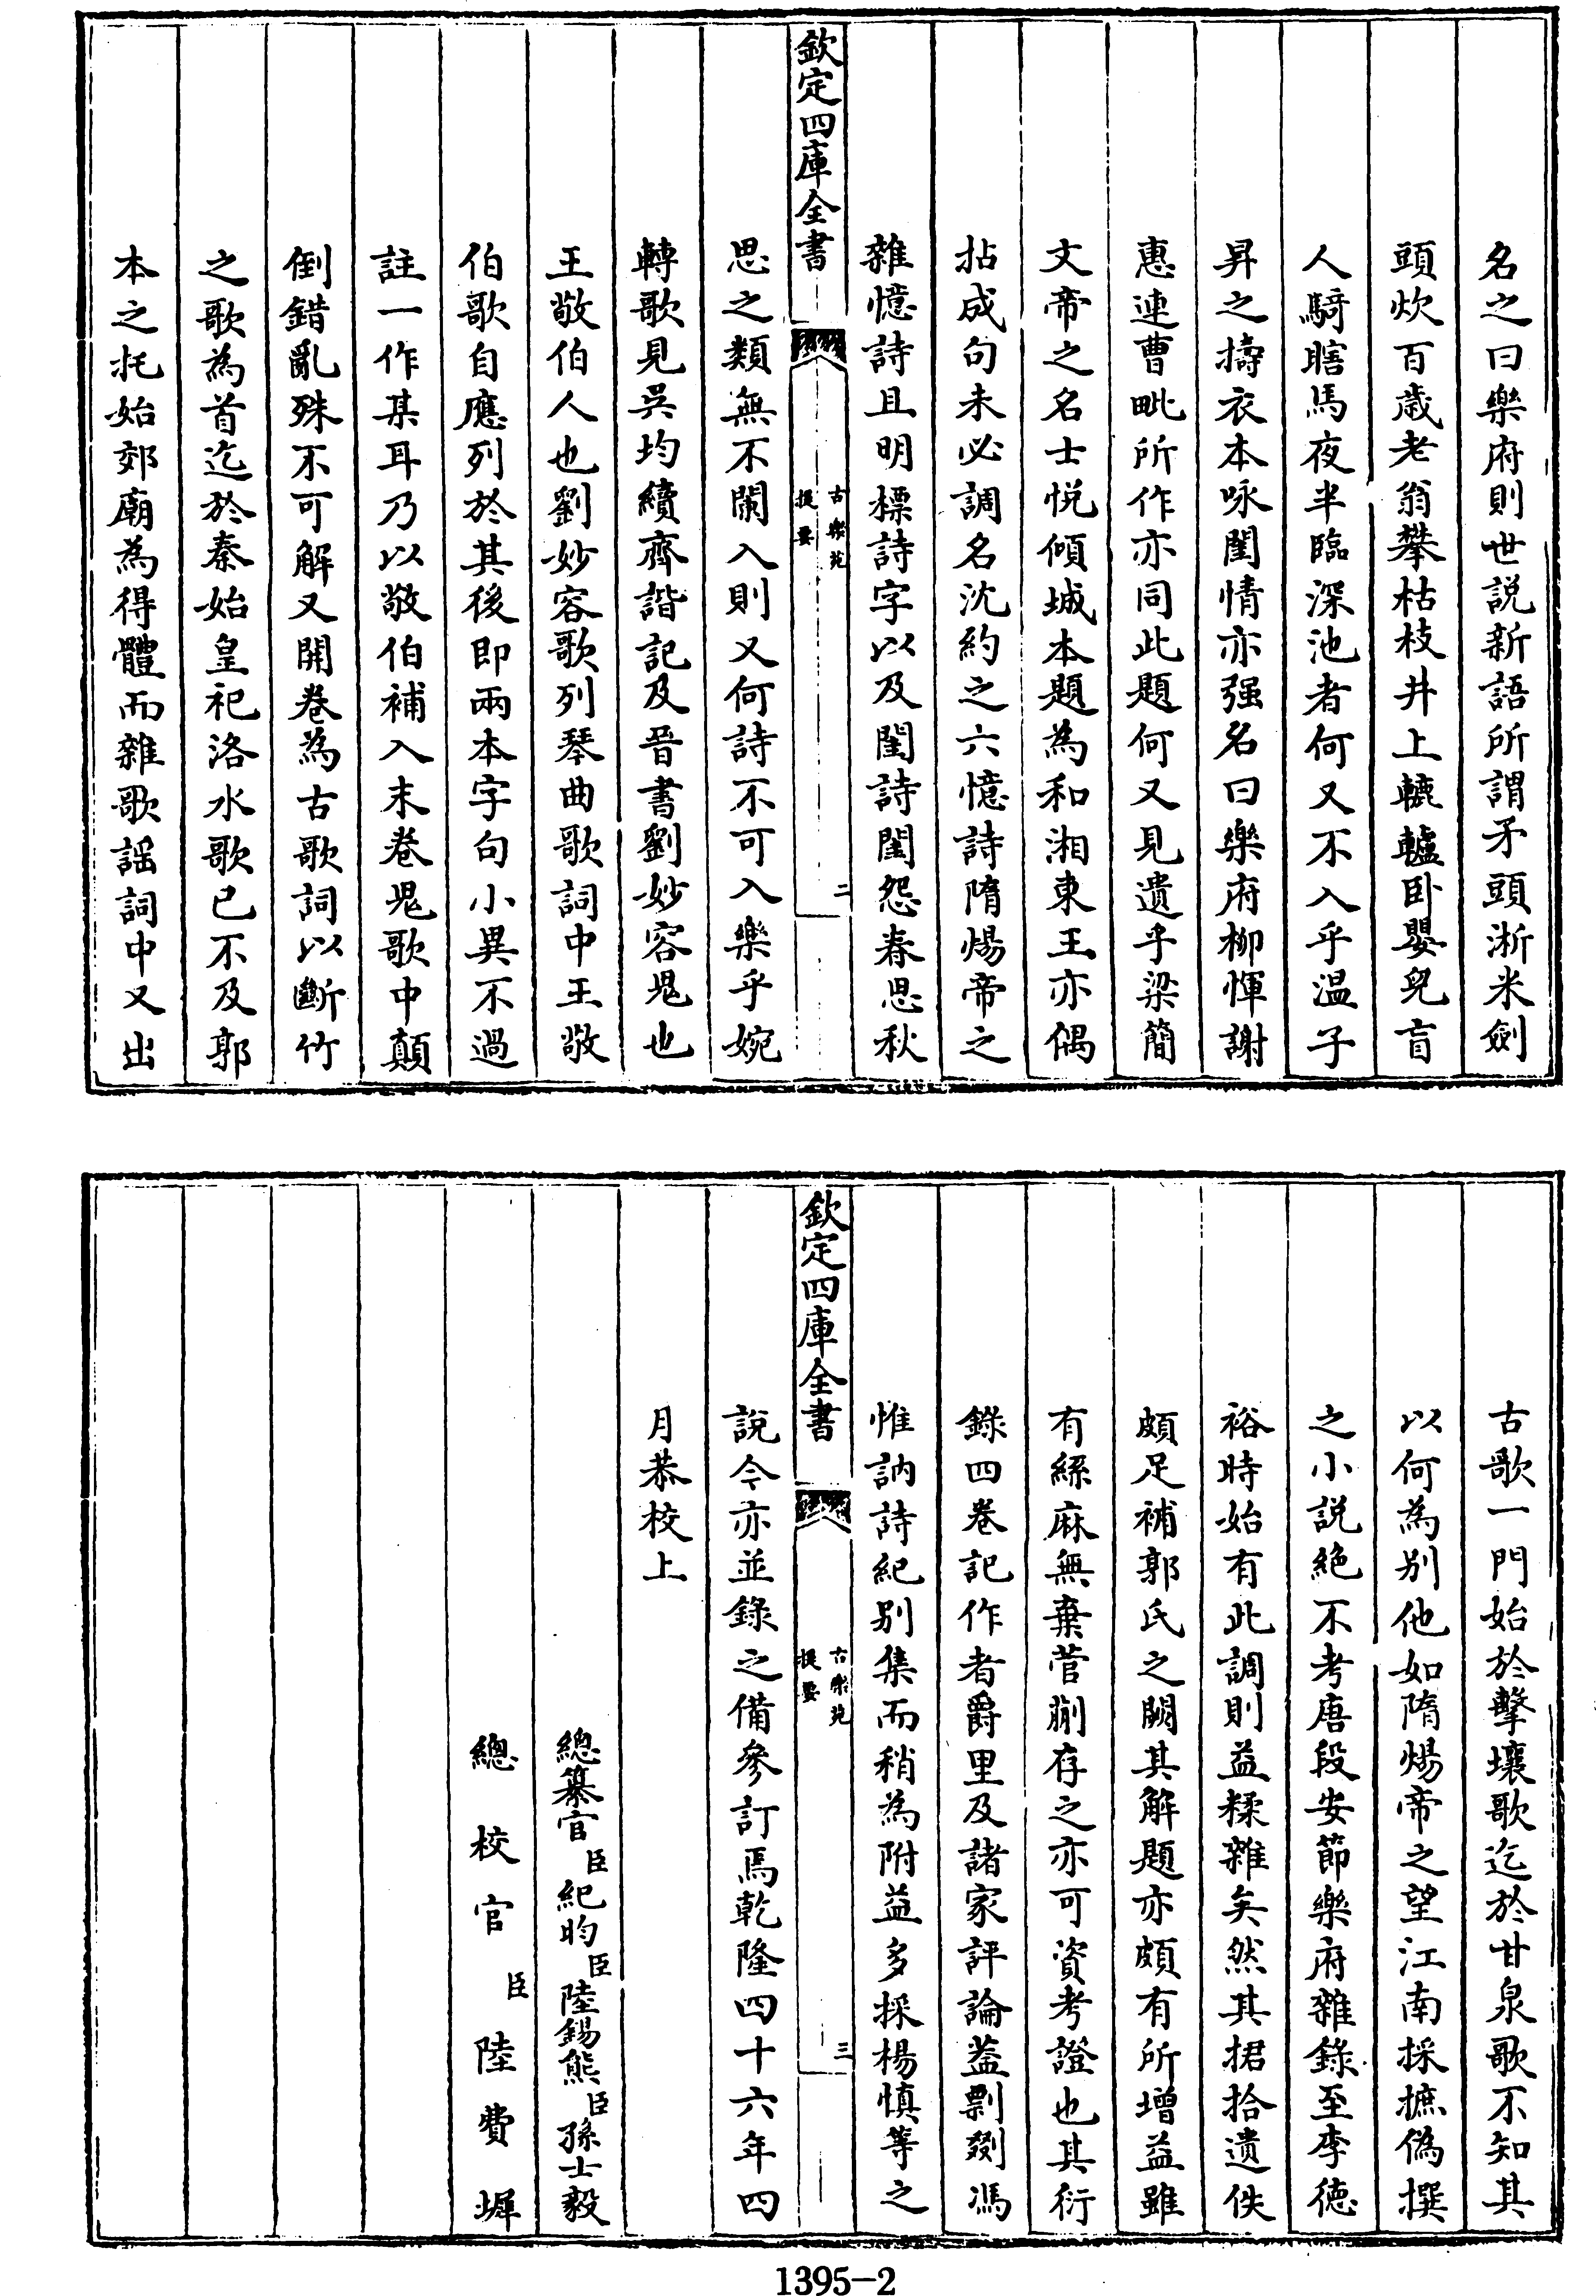 名之曰樂府則世説新語所謂矛頭淅米劍
頭炊百歲老翁攀枯枝井上轆轤卧嬰兒盲
人騎瞎馬夜半臨深池者何又不入乎温子
昇之擣衣本咏閨情亦强名曰樂府柳惲謝
惠連曹毗所作亦同此題何又見遺乎梁簡
文帝之名士悦傾城本題為和湘東王亦偶
拈成句未必調名沈約之六憶詩隋煬帝之
雜憶詩且明標詩字以及閨詩閨怨春思秋
欽定四庫全書
古樂苑
提要
二
思之類無不闌入則又何詩不可入樂乎婉
轉歌見吳均續齊諧記及晉書劉妙容鬼也
王敬伯人也劉妙容歌列琴曲歌詞中王敬
伯歌自應列於其後即兩本字句小異不過
註一作某耳乃以敬伯補入末卷鬼歌中顛
倒錯亂殊不可解又開卷為古歌詞以斷竹
之歌為首迄於秦始皇祀洛水歌已不及郭
本之托始郊廟為得體而雜歌謡詞中又出
古歌一門始於擊壤歌迄於甘泉歌不知其
以何為别他如隋煬帝之望江南採摭偽撰
之小説絶不考唐段安節樂府雜錄至李德
裕時始有此調則益糅雜矣然其捃拾遺佚
頗足補郭氏之闕其解題亦頗有所增益雖
有絲麻無棄菅蒯存之亦可資考證也其衍
錄四卷記作者爵里及諸家評論蓋剽剟馮
惟訥詩紀别集而稍為附益多採楊慎等之
欽定四庫全書
古樂苑
提要
三
說今亦並錄之備參訂焉乾隆四十六年四
月恭校上
總纂官臣紀昀臣陸錫熊臣孫士毅
總校官臣陸費墀
1395-2